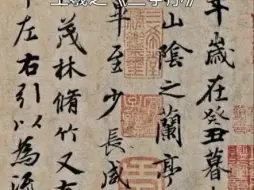 年歲在癸丑暮
山陰之蘭亭
畢至少長咸
茂林脩竹又有
左右引以為流